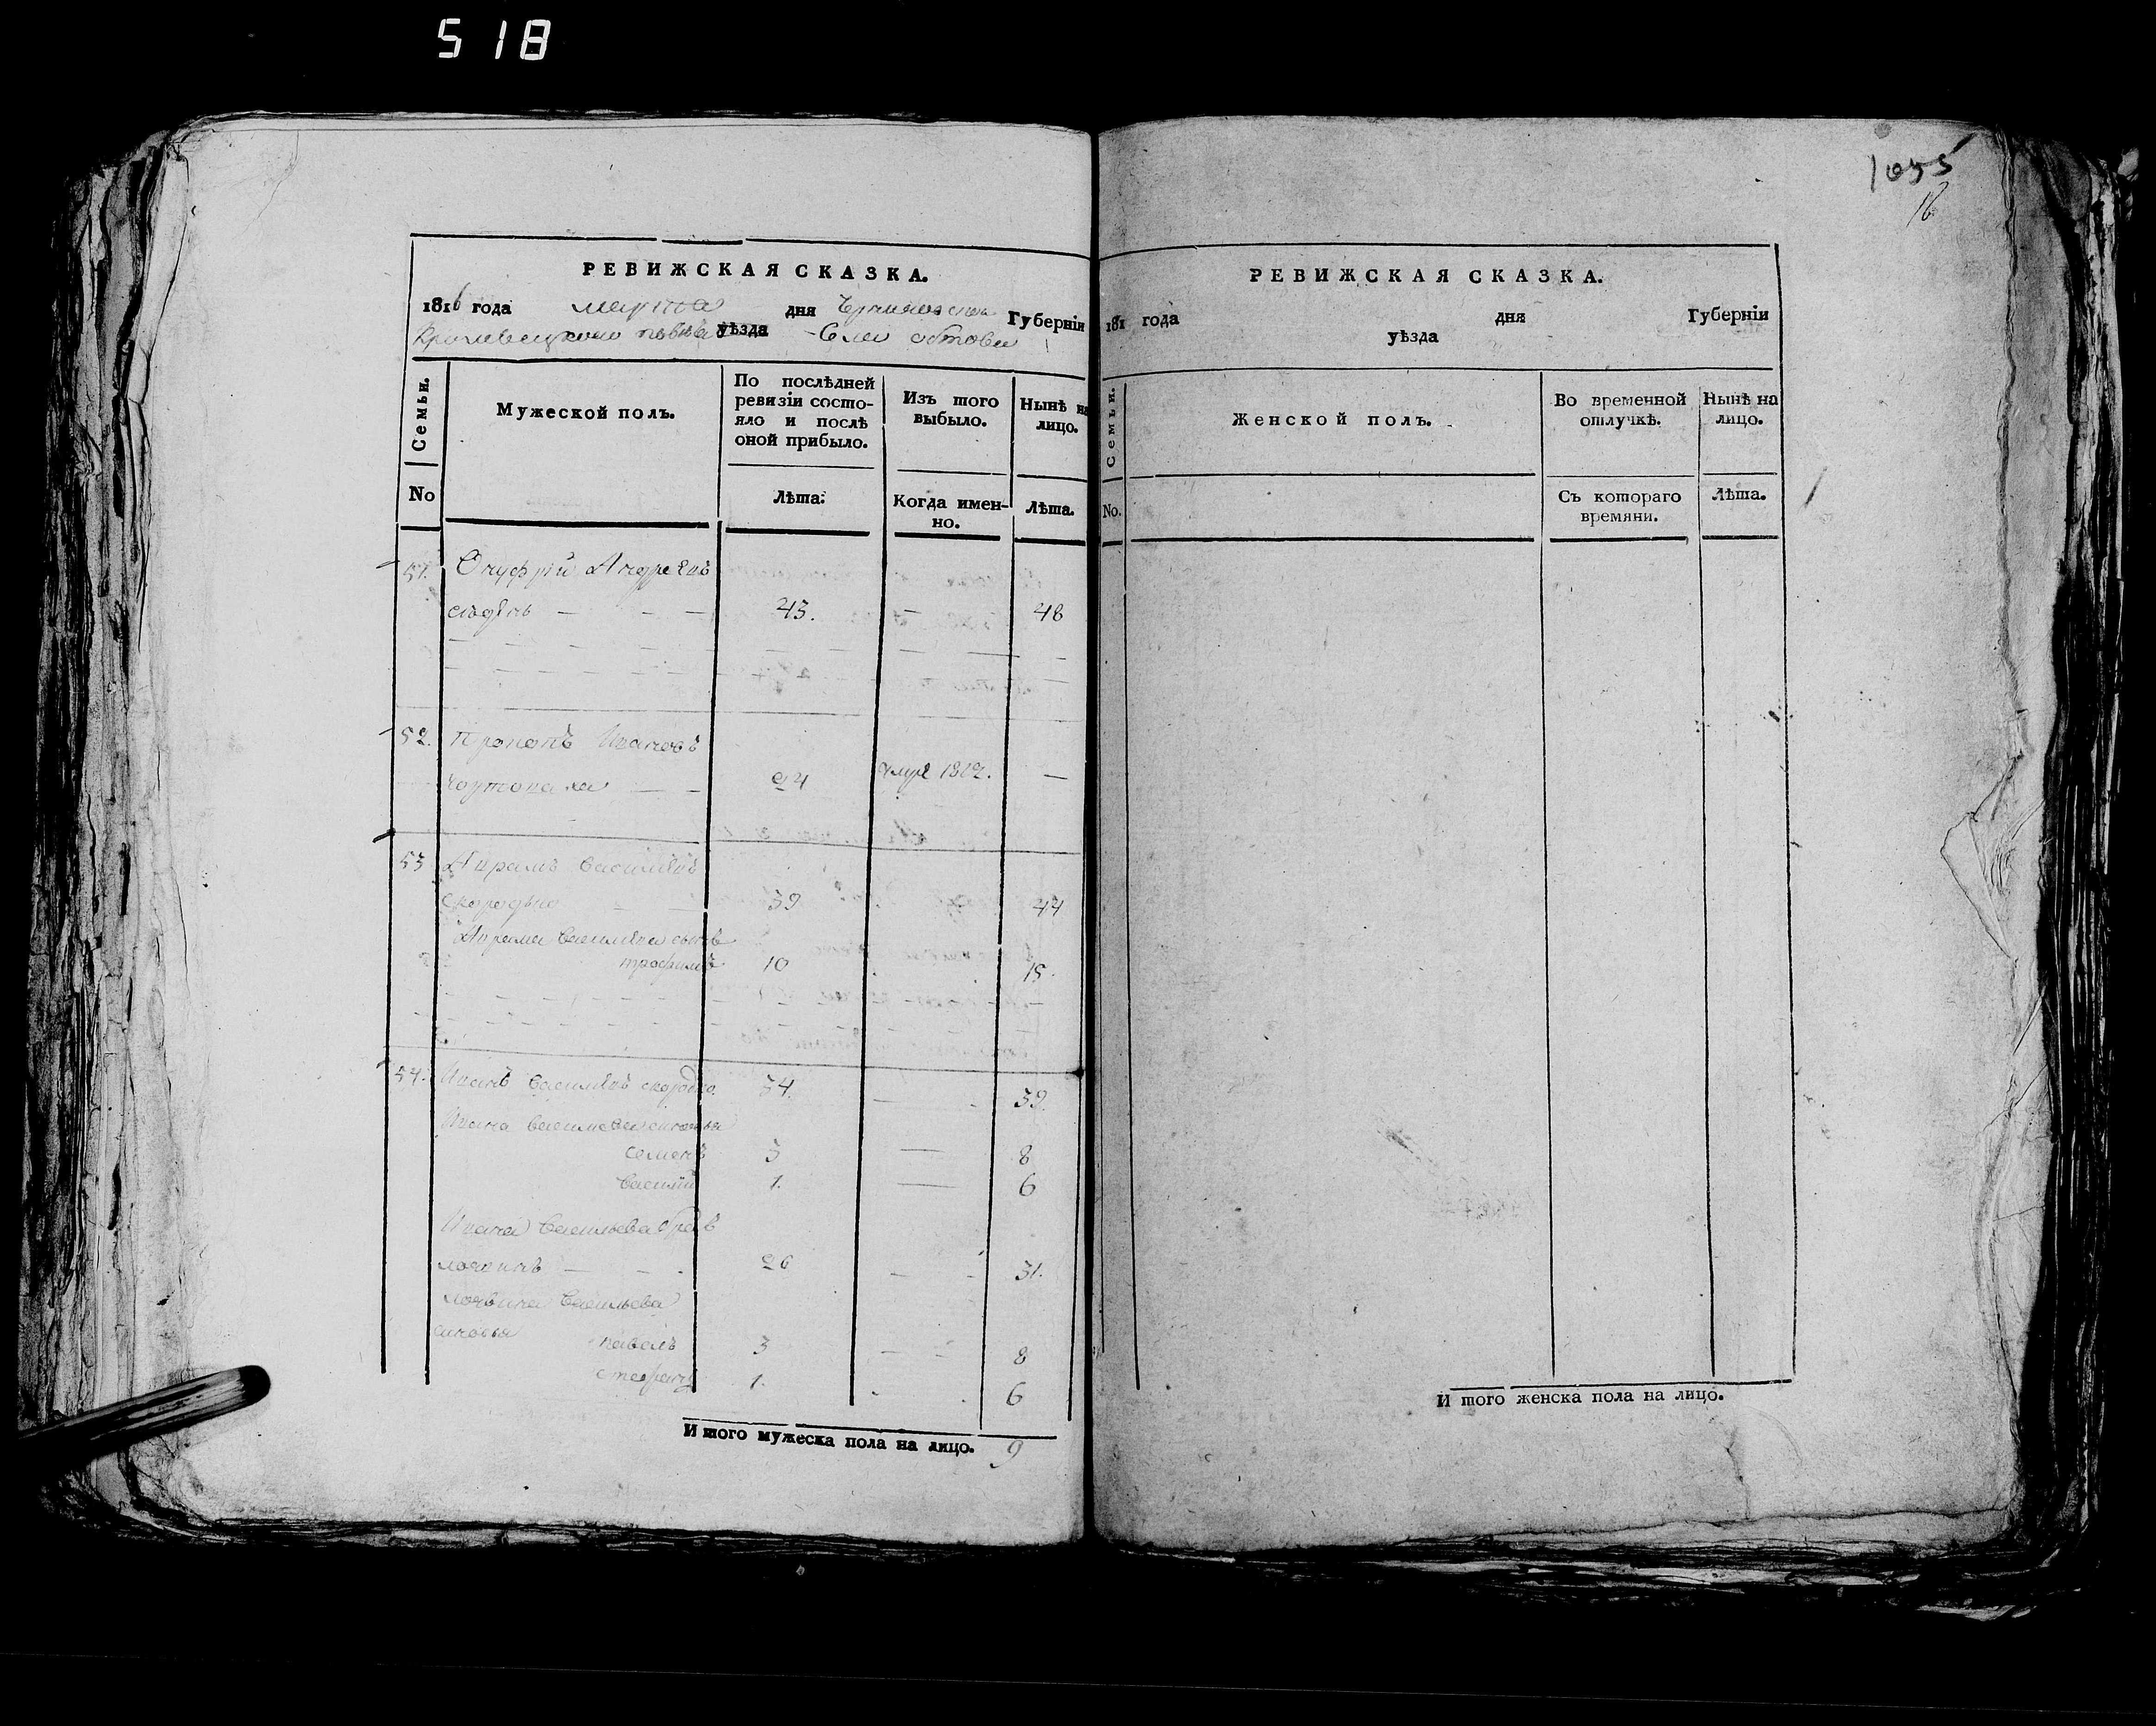 518
1055
16
РЕВИЖСКАЯ СКАЗКА.
1816 года марта дня Черниговской Губерніи
Кролевецкого повѣта уѣзда Села обтова
Семьи.
Мужеской полъ.
По послѣдней ревизіи состояло и послѣ оной прибыло.
Изъ того выбыло.
Нынѣ на лицо.
No
Лѣта.
Когда именно.
Лѣта.
51. Онуфрій Андреевъ
43. — 48
52. Прокопъ Ивановъ
24 умре 1812. —
53 Аврамъ Василіевъ
39 44
Аврама Василіева сынъ
трофимъ 10 15.
54. Иванъ Василіевъ 34. — 39.
Ивана Василіева сыновья
Семенъ 3 — 8
Василій 1. — 6
Ивана Васильева братъ
логвинъ — 26 — 31.
логвина Васильева
сыновья
павелъ 3 — 8
стефанъ 1. 6
И того мужеска пола на лицо. 9
РЕВИЖСКАЯ СКАЗКА.
181 года дня Губерніи
уѣзда
Семьи.
Женской полъ.
Во временной отлучкѣ.
Нынѣ на лицо.
No.
Съ котораго времяни.
Лѣта.
И того женска пола на лицо.